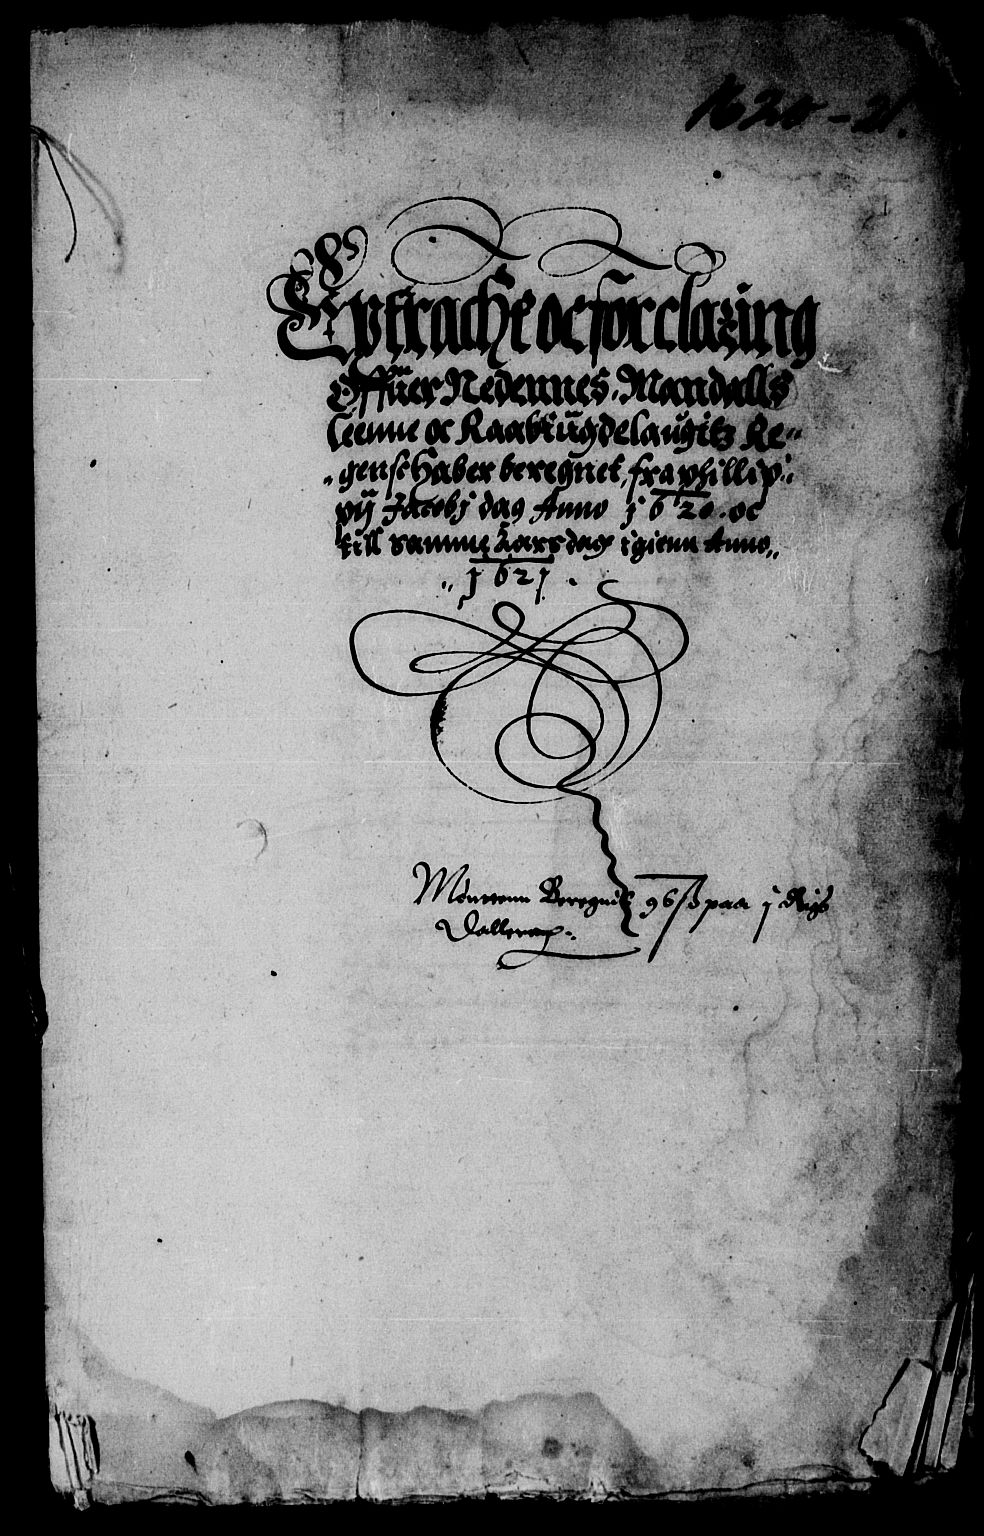 1620-21.
Extracht oc forclaring
Offuer Nedennes, Mandalls
Leenne oc Raabiugdelaugitz Re-
genschaber beregnet, fra phillip-
pij Jacobj dag Anno j620. oc
till samme Aars dag igienn Anno
j62j.
Mønttenn Beregnit 96 ß paa j Rigs
Dallerex